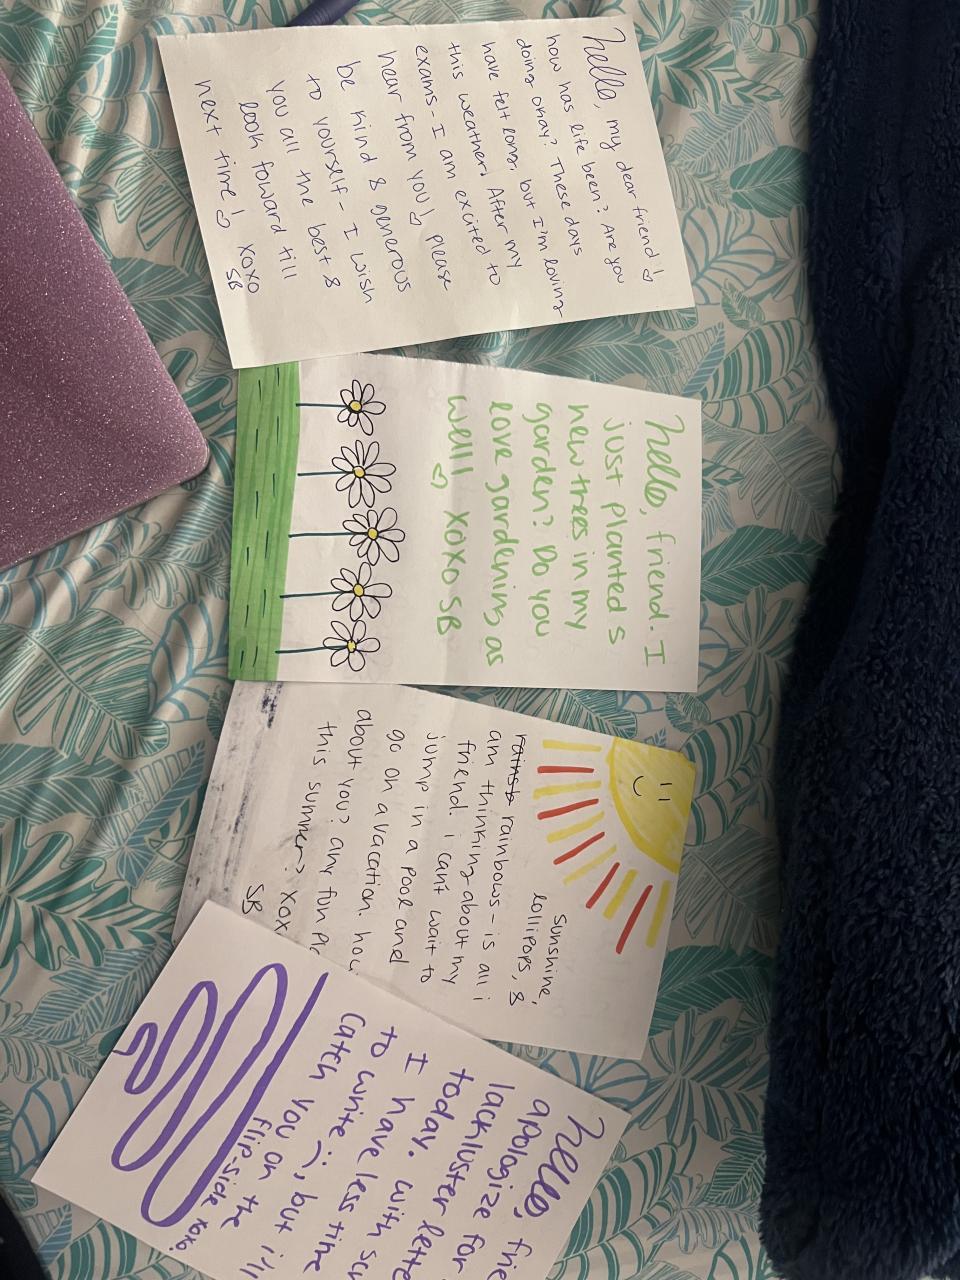 hello, my dear friend! ♡
how has life been? Are you
doing okay? These days
have felt long, but I'm loving
this weather. After my
exams - I am excited to
hear from you! ♡ please
be kind & generous
to yourself - I wish
you all the best &
look foward till
next time! ♡ xoxo
SB
hello, friend. I
just planted s
new trees in my
garden? Do you
love gardening as
well! ♡ xoxo SB
Sunshine,
lollipops, &
rainbows - is all i
am thinking about my
friend. i can't wait to
jump in a pool and
go on a vacation. how
about you? any fun
this summer? xox
SB
hello,
apologize for
lackluster
today. with
I have less time
to write :), but i'll
catch you on the
flip-side xoxo.